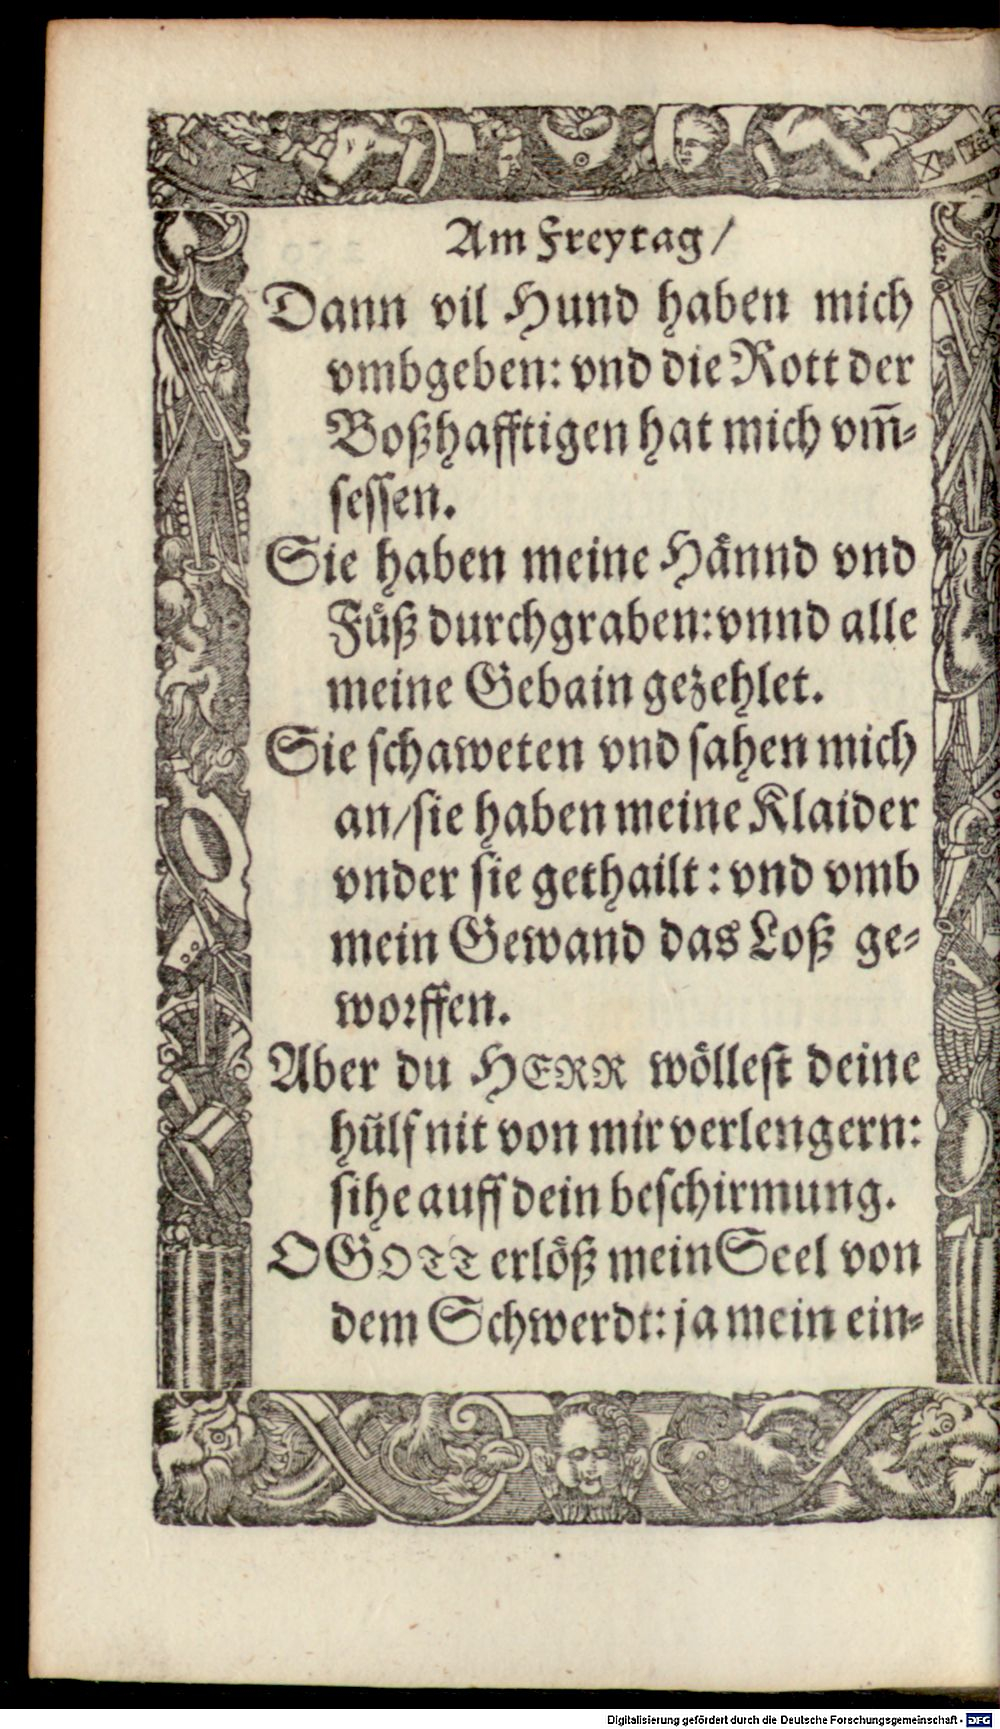 Am Freytag/
Dann vil Hund haben mich
vmbgeben: vnd die Rott der
Boßhafftigen hat mich vm̃-
sessen.
Sie haben meine Hånnd vnd
Fůß durchgraben: vnnd alle
meine Gebain gezehlet.
Sie schaweten vnd sahen mich
an/ sie haben meine Klaider
vnder sie gethailt: vnd vmb
mein Gewand das Loß ge-
worffen.
Aber du HERR wöllest deine
hülf nit von mir verlengern:
sihe auff dein beschirmung.
O GOTT erlöß mein Seel von
dem Schwerdt: ja mein ein-
Digitalisierung gefördert durch die Deutsche Forschungsgemeinschaft - DFG